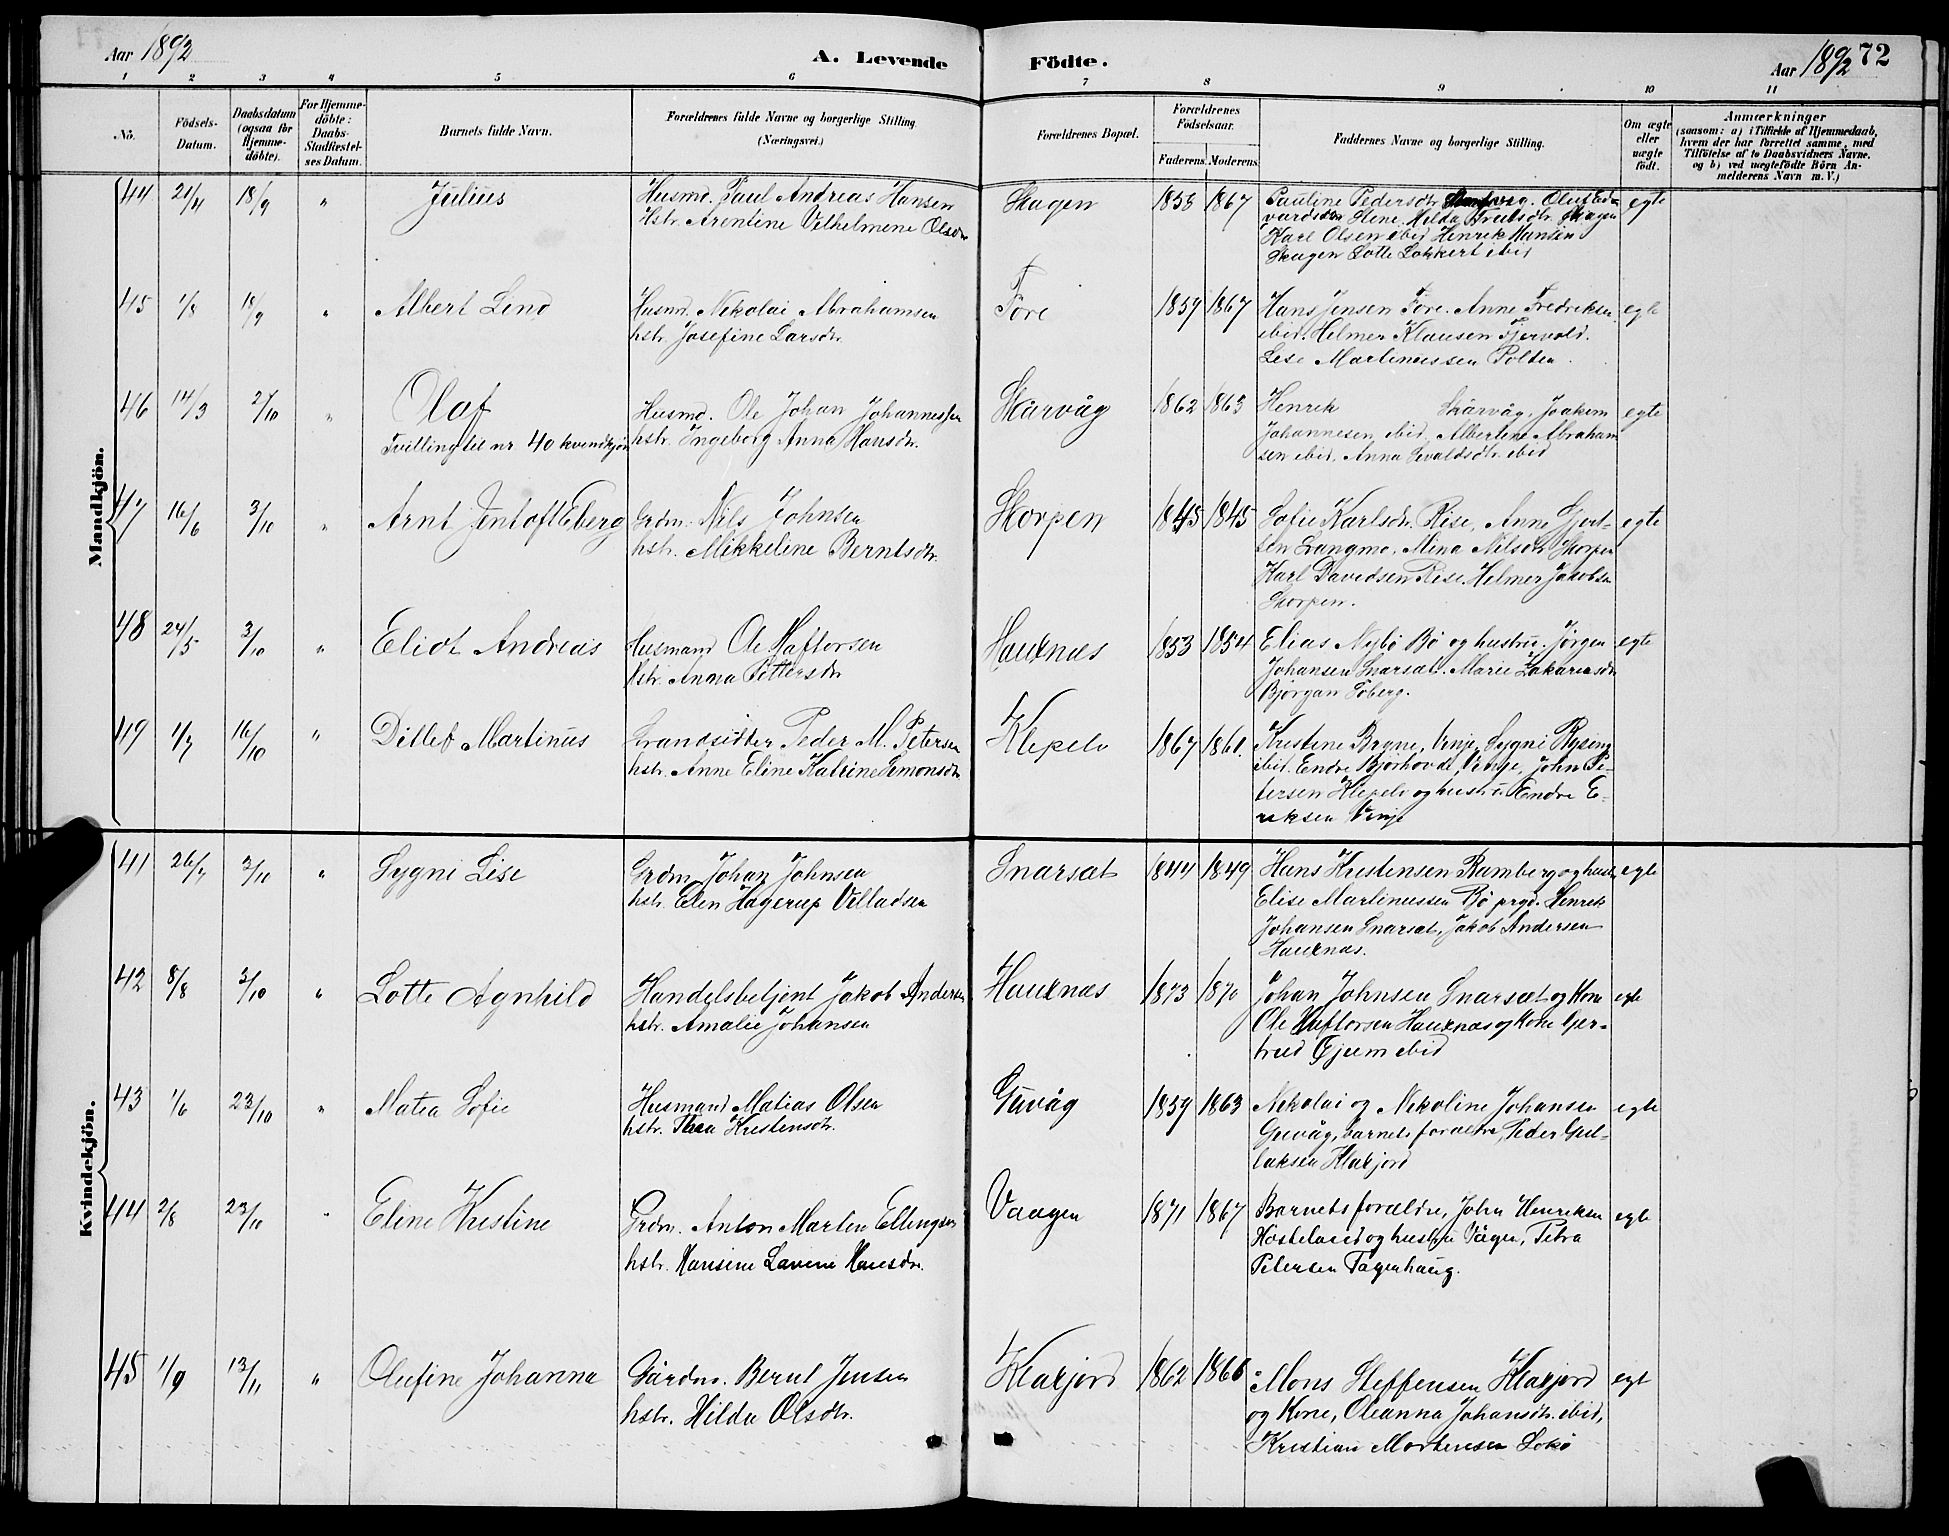 Aar 1892
A. Levende Födte.
Aar 1892
72
1 2 3 4 5 6 7 8 9 10 11
No.
Födsels-Datum.
Daabsdatum (ogsaa for Hjemme-döbte).
For Hjemme-döbte: Daabs-Stadfæstel-ses Datum.
Barnets fulde Navn.
Forældrenes fulde Navne og borgerlige Stilling. (Næringsvei.)
Forældrenes Bopæl.
Forældrenes Födselsaar.
Faderens. Moderens.
Faddernes Navne og borgerlige Stilling.
Om ægte eller uægte födt.
Anmærkninger
(saasom: a) i Tilfælde af Hjemmedaab,
hvem der har forrettet samme, med
Tilföielse af to Daabsvidners Navne.
og b) ved uægtefödte Börn An-
melderens Navn m. V.)
Mandkjön.
44 21/4 18/9 " Julius
Husmd. Paul Andreas Hansen
Hstr. Arentine Vilhelmine Olsdtr
Skagen 1858 1867
Pauline Pedersdtr. Oluf Ed-
vardsen Stene. Hilda Skagen
Karl Olsen ibid Henrik Hansen
Skagen Lotte Lokkert ibid
egte
45 1/8 18/9 " Albert Lind
Husmd. Nikolai Abrahamsen
hstr. Josefine Larsdtr.
Føre 1859 1867
Hans Jensen Føre. Anne Fredriksen
ibid. Helmer Klausen Fjervold.
Lise Martinussen Polden.
egte
46 14/3 2/10 " Olaf
Tvilling til nr 40 kvindkjøn
Husmd. Ole Johan Johannessen
hstr. Ingeborg Anna Hansdtr.
Skårvåg 1862 1863
Henrik Skårvåg, Joakim
Johannesen ibid, Albertine Abraham
sen ibid, Anna Sevaldsdtr. ibid
egte
47 16/6 3/10 " Arnt Jentoft Eberg
Grdm. Nils Johnsen
hstr. Mikkeline Berntsdtr.
Skorpen 1845 1845
Sofie Karlsdtr. Rise, Anne Gjert-
sen Langmo, Mina Nilsdtr Skorpen
Karl Davidsen Rise, Helmer Jakobsen
Skorpen.
egte
48 24/5 3/10 " Eliot Andreas
Husmand Ole Haftorsen
Hstr. Anna Pettersdtr
Hauknæs 1853 1854
Elias Nybø Bø og hustru. Jørgen
Johansen Snarsæt. Marie Zakariasdtr
Bjørgan Foberg.
egte
49 1/7 16/10 " Ditlef Martinus
Strandsidder Peder M. Petersen
hstr. Anne Eline Katrine Simonsdtr
Klepelv 1867 1861.
Kristine Bryne, Vinje, Sygni Ryseng
ibid. Endre Bjørhovde, Vinje, John Pe-
tersen Klepelv og hustru Endre E-
riksen Vinje
Kvindekjön.
41 26/7 3/10 " Sygni Lise
Grdm. Johan Johnsen
hstr. Elen Hagerup Villadsen
Snarsæt 1844 1849
Hans Kristensen Ramberg og hust.
Elise Martinussen Bø prgd. Henrik
Johansen Snarsæt, Jakob Andersen
Hauknæs.
egte
42 8/8 3/10 " Lotte Agnhild
Handelsbetjent Jakob Andersen
hstr. Amalie Johansen
Hauknæs 1873 1870
Johan Johnsen Snarsæt og Kone
Ole Haftorsen Hauknæs og Kone Ger-
trud Gjum ibid
egte
43 1/6 23/10 " Matea Sofie
Husmand Matias Olsen
hstr. Thea Kristensdtr.
Guvåg 1859 1863
Nikolai og Nikoline Johansen
Guvåg, barnets forældre, Peder Gul-
laksen Klakjord
egte
44 2/8 23/10 " Eline Kristine
Grdm. Anton Martin Ellingsen
hstr. Hansine Lavine Hansdtr.
Vaagen 1871 1867
Barnets forældre, John Henriksen
Hosteland og hustru Vågen, Petra
Petersen Fagerhaug.
egte
45 1/9 13/11 " Olufine Johanna
Gårdm. Bernt Jensen
hstr. Hilda Olsdtr.
Klakjord 1862 1866
Mons Steffensen Klakjord
og Kone, Oleanna Johansdtr. ibid,
Kristian Mortensen Sokø
egt